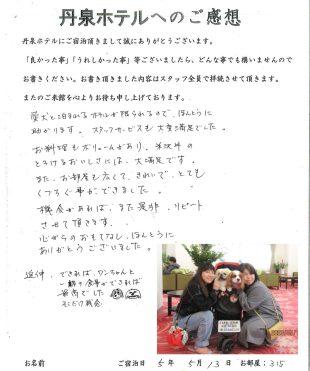 丹泉ホテルへのご感想
丹泉ホテルにご宿泊頂きまして誠にありがとうございます。
「良かった事」「うれしかった事」等ございましたら、どんな事でも構いませんので
お書きください。お書き頂きました内容はスタッフ全員で拝読させて頂きます。
またのご来館を心よりお待ち申し上げております。
愛犬と泊まれるホテルが限られるので、ほんとうに
助かります。スタッフサービスも大変満足でした。
お料理もボリュームがあり、米沢牛の
とろけるおいしさには、大満足です。
また、お部屋も広くて、きれいで、とても
くつろぐ事ができました。
機会があれば、また是非、リピート
させて頂きます。
心からのおもてなし、ほんとうに
ありがとうございました。
追伸、できれば、ワンちゃんと
一緒の食事ができれば
最高でした
そこだけ残念
お名前 ご宿泊日 5年 5月13日 お部屋:315